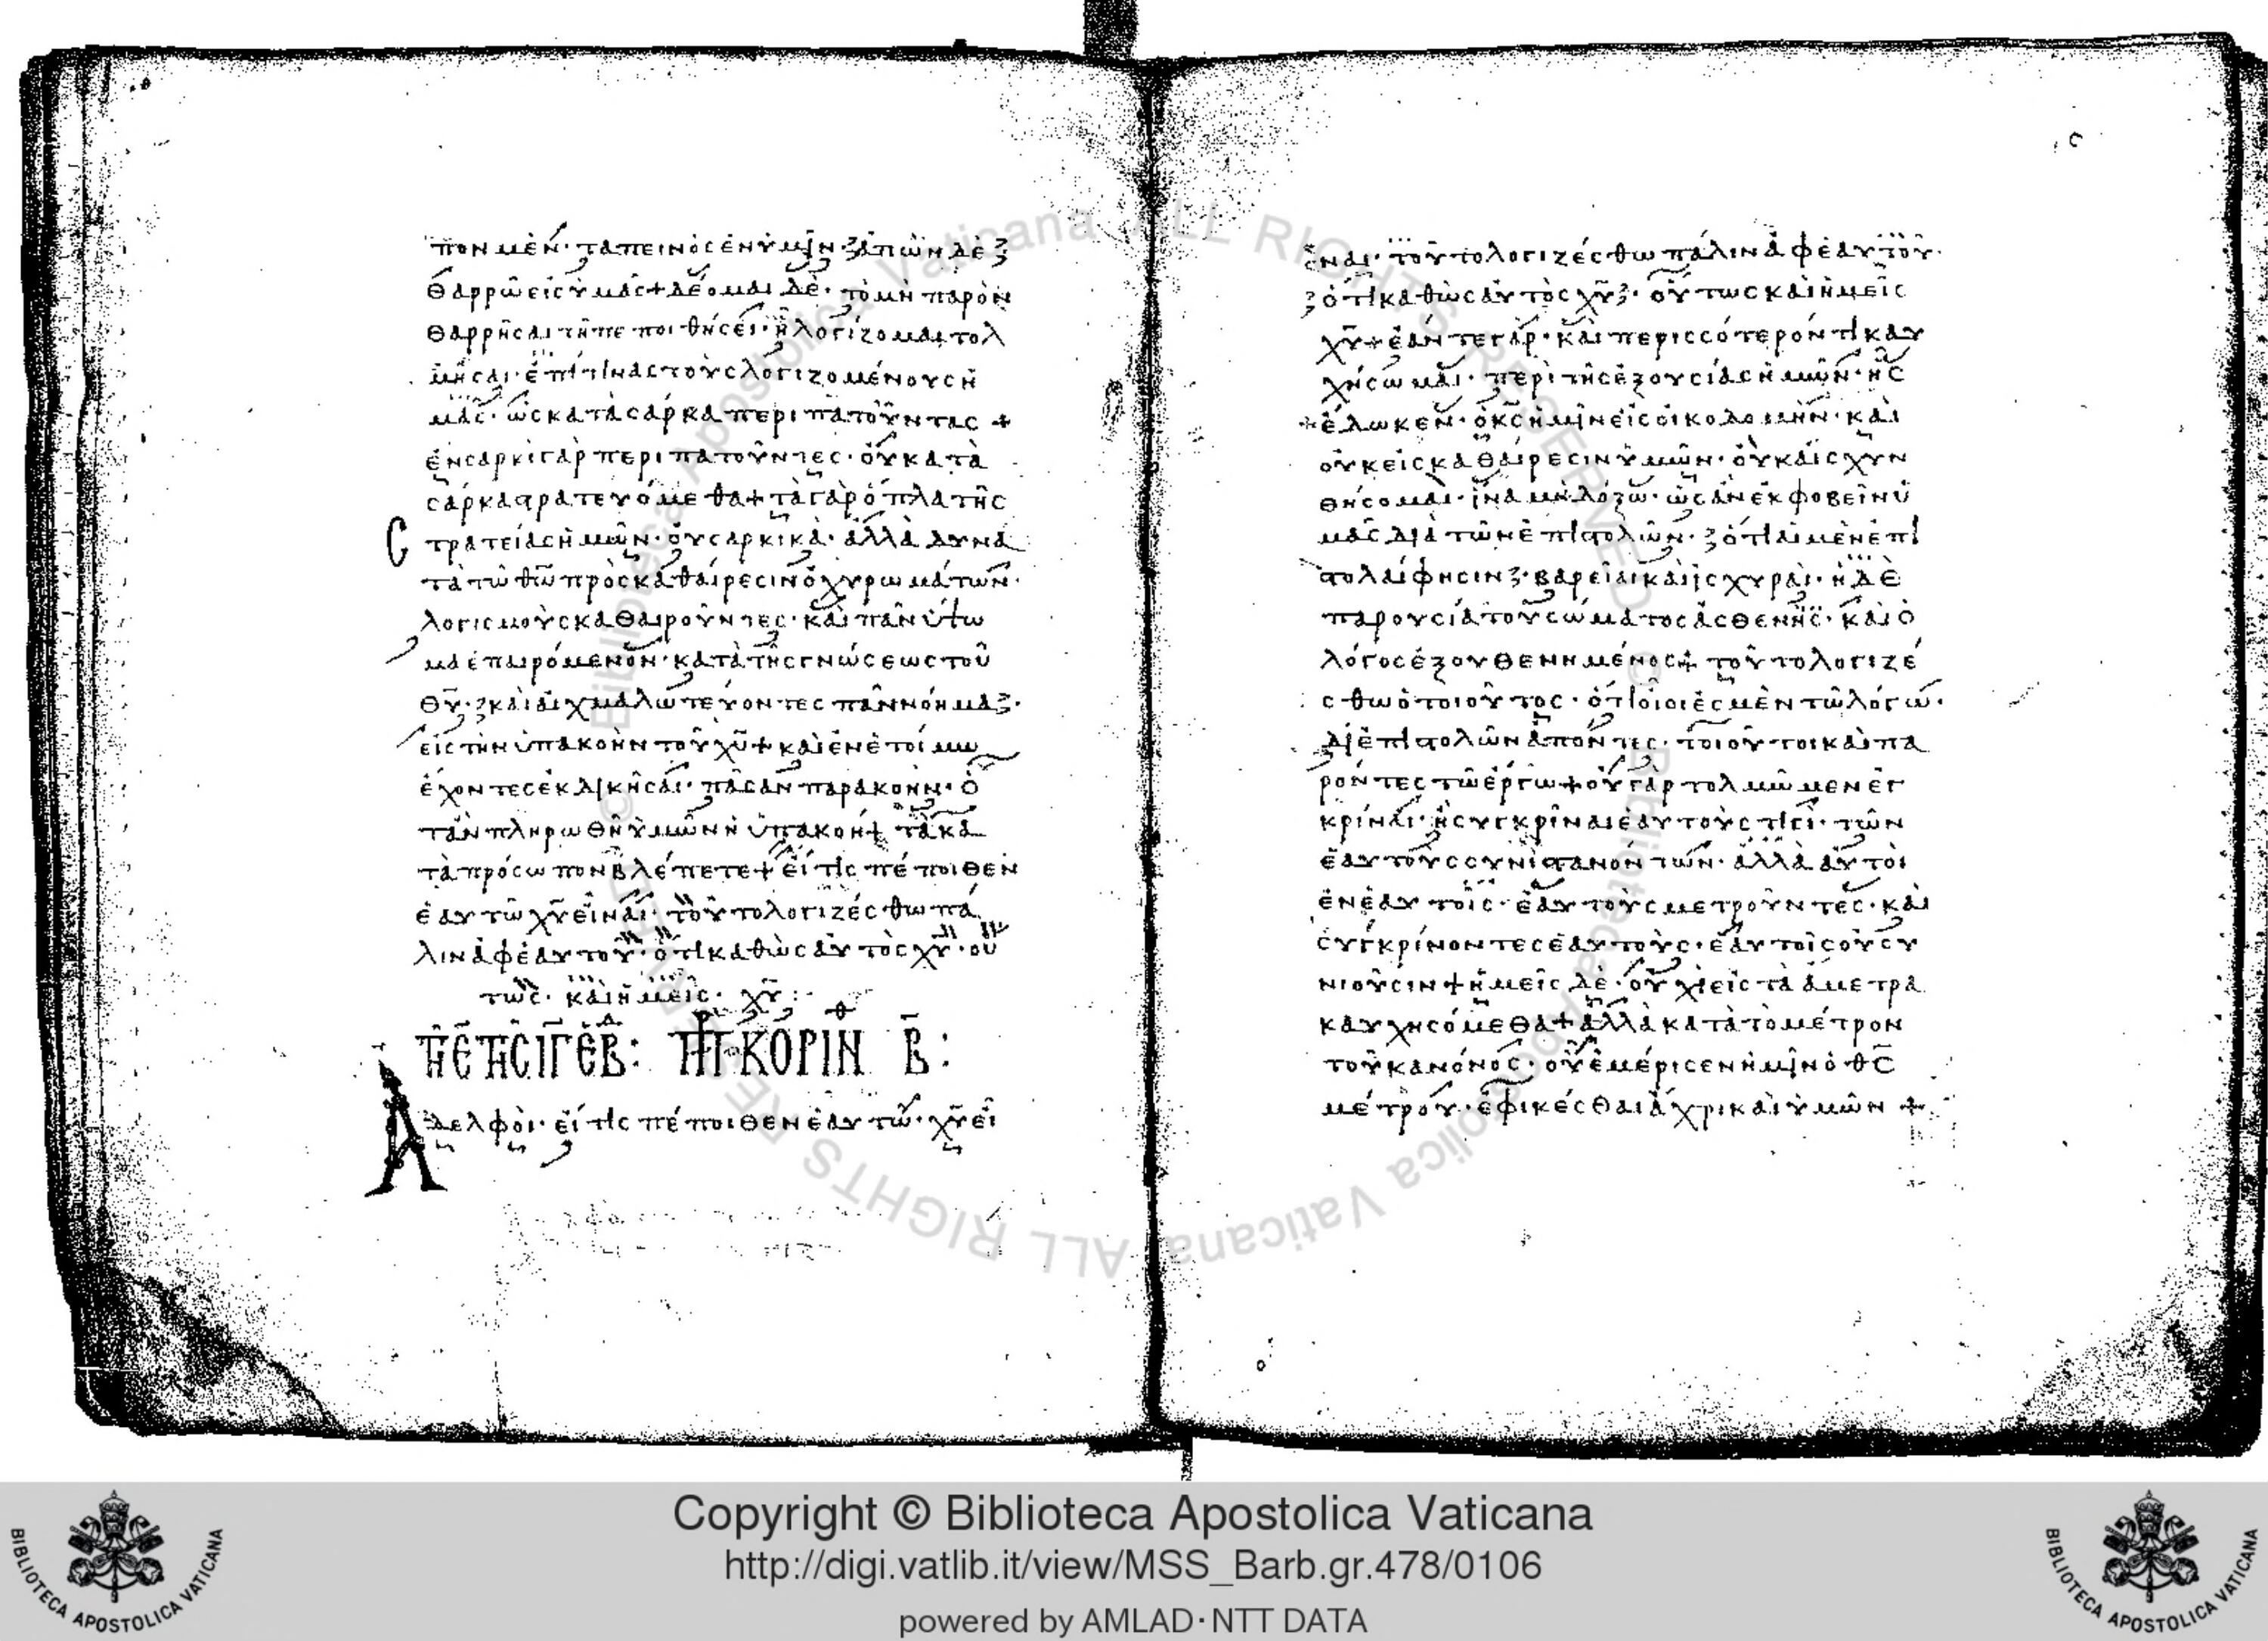 πον μὲν· ταπεινὸς ἐν ὑμῖν ξ ἀπὼν δὲ ξ
θαρρῶ εἰς ὑμᾶς + δέομαι δὲ· τὸ μὴ παρὸν
θαρρῆσαι τῆ πεποιθήσει· ἧ λογίζομαι τολ
μῆσαι· ἐπί τινας τοὺς λογιζομένους ἡ
μᾶς· ὡς κατὰ σάρκα περιπατοῦντας +
ἐν σαρκὶ γὰρ περιπατοῦντες· οὐ κατὰ
σάρκα στρατευόμεθα + τὰ γὰρ ὅπλα τῆς
στρατείας ἡμῶν· οὐ σαρκικὰ· ἀλλὰ δυνα
τὰ τῶ θῶ πρὸς καθαίρεσιν ὀχυρωμάτων·
λογισμοὺς καθαιροῦντες· καὶ πᾶν ὕψω
μα ἐπαιρόμενον· κατὰ τῆς γνώσεως τοῦ
θυ· ξ καὶ αἰχμαλωτεύοντες πᾶν νόημα ξ·
εἰς τὴν ὑπακοὴν τοῦ χυ + καὶ ἐν ἑτοίμω
ἔχοντες ἐκδικῆσαι· πᾶσαν παρακοὴν· ὅ
ταν πληρωθῆ ὑμῶν ἡ ὑπακοή + τὰ κα
τὰ πρόσωπον βλέπετε + εἴ τις πέποιθεν
ἑαυτῶ χυ εἶναι· τοῦτο λογιζέσθω πά
λιν ἀφ ἑαυτοῦ· ὅτι καθὼς αὐτὸς χυ· οὕ
τως· καὶ ἡμεῖς· χυ:
κορινθ β:
Ἀδελφοὶ· εἴ τις πέποιθεν ἑαυτῶ· χυ εἶ
ναι· τοῦτο λογιζέσθω πάλιν ἀφ ἑαυτοῦ·
ξ ὅτι καθὼς αὐτὸς χυ ξ· οὕτως καὶ ἡμεῖς
χυ + ἐάν τε γὰρ· καὶ περισσότερόν τι καυ
χήσωμαι· περὶ τῆς ἐξουσίας ἡμῶν· ἧς
ἔδωκεν· ὁ κς ἡμῖν εἰς οἰκοδομὴν· καὶ
οὐκ εἰς καθαίρεσιν ὑμῶν· οὐκ αἰσχυν
θήσομαι· ἵνα μὴ δόξω· ὡς ἂν ἐκφοβεῖν ὑ
μᾶς διὰ τῶν ἐπιστολῶν· ξ ὅτι αἱ μὲν ἐπι
στολαί φησιν ξ· βαρεῖαι καὶ ἰσχυραὶ· ἡ δὲ
παρουσία τοῦ σώματος ἀσθενὴς· καὶ ὁ
λόγος ἐξουθενημένος + τοῦτο λογιζέ
σθω ὁ τοιοῦτος· ὅτι οἷοι ἐσμὲν τῶ λόγω·
δι ἐπιστολῶν ἀπόντες· τοιοῦτοι καὶ πα
ρόντες τῶ ἔργω + οὐ γὰρ τολμῶμεν ἐγ
κρίναι· ἢ συγκρῖναι ἑαυτούς τισι· τῶν
ἑαυτοὺς συνιστανόντων· ἀλλὰ αὐτοὶ
ἐν ἑαυτοῖς· ἑαυτοὺς μετροῦντες· καὶ
συγκρίνοντες ἑαυτοὺς· ἑαυτοῖς οὐ συ
νιοῦσιν + ἡμεῖς δὲ· οὐχὶ εἰς τὰ ἄμετρα
καυχησόμεθα + ἀλλὰ κατὰ τὸ μέτρον
τοῦ κανόνος· οὗ ἐμέρισεν ἡμῖν ὁ θς
μέτρου· ἐφικέσθαι ἄχρι καὶ ὑμῶν +
Copyright © Biblioteca Apostolica Vaticana
http://digi.vatlib.it/view/MSS_Barb.gr.478/0106
powered by AMLAD·NTT DATA
BIBLIOTECA APOSTOLICA VATICANA
BIBLIOTECA APOSTOLICA VATICANA
© Biblioteca Apostolica Vaticana ALL RIGHTS RESERVED
© Biblioteca Apostolica Vaticana ALL RIGHTS RESERVED